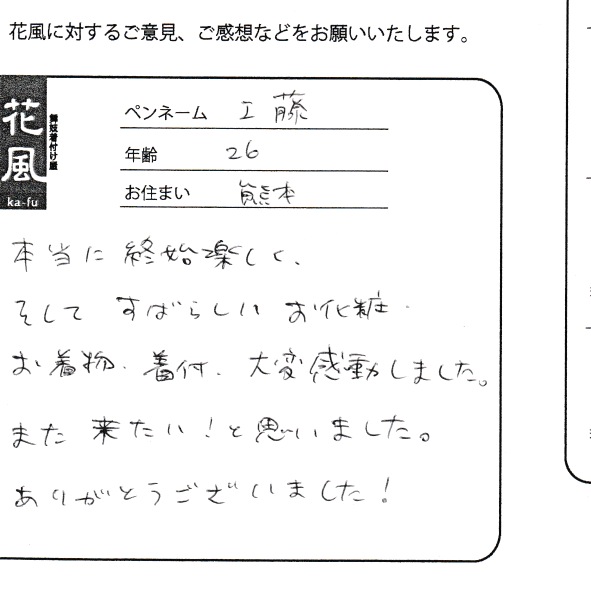 花風に対するご意見、ご感想などをお願いいたします。
花風
舞妓着付け屋
ka-fu
ペンネーム 工藤
年齢 26
お住まい 熊本
本当に 終始楽しく、
そして すばらしい お化粧・
お着物・着付・大変感動しました。
また 来たい!と思いました。
ありがとうございました!